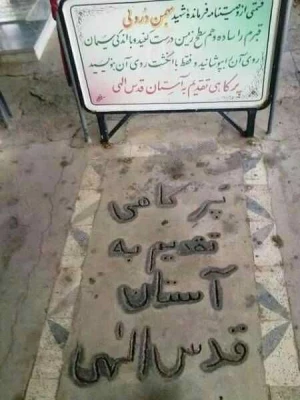 قسمتی از وصیتنامه فرمانده شهید بهمن درولی
قبرم را ساده و هم سطح زمین درست کنید و با اندکی سیمان
روی آن را بپوشانید و فقط با انگشت روی آن بنویسید
پر کاهی تقدیم به آستان قدس الهی
پر کاهی
تقدیم به
آستان
قدس الهی